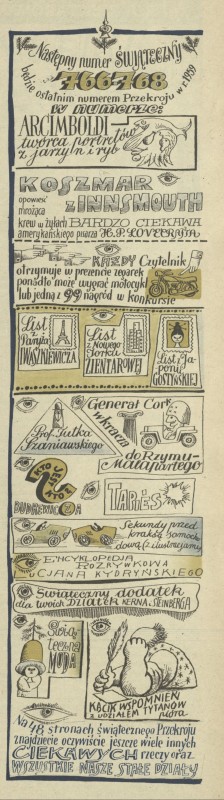 Następny numer ŚWIĄTECZNY
766-768
będzie ostatnim numerem Przekroju w r. 1959
W numerze:
ARCIMBOLDI
twórca portretów
z jarzyn i ryb
KOSZMAR
Z INNSMOUTH
opowieść
mrożąca
krew w żyłach BARDZO CIEKAWA
amerykańskiego pisarza H.P. LOVECRAFTA
KAŻDY Czytelnik
otrzymuje w prezencie zegarek
ponadto może wygrać motocykl
lub jedną z 99 nagród w konkursie
List z
Paryża
DWOŻNIEWICZA
List
z Nowego
Jorku
ZIENTAROWEJ
List z Ja-
ponii
GOSTYŃSKIEJ
Prof. Tutka
Szaniawskiego
General Cork
wkracza
do Rzymu-
Malapartego
KTO
KTO
TAPIES
Sekundy przed
kraksą samocho-
dową (z ilustracjami)
ENCYKLOPEDIA
ROZRYWKOWA
LUCJANA KYDRYŃSKIEGO
Świąteczny dodatek
dla Twoich DZIATEK KERNA i SKARŻYŃSKIEGO
MODA
KĄCIK WSPOMNIEŃ
Z UDZIAŁEM TYTANÓW
pióra
Na 48 stronach świątecznego Przekroju
znajdziecie oczywiście jeszcze wiele innych
CIEKAWYCH rzeczy oraz
WSZYSTKIE NASZE STAŁE DZIAŁY